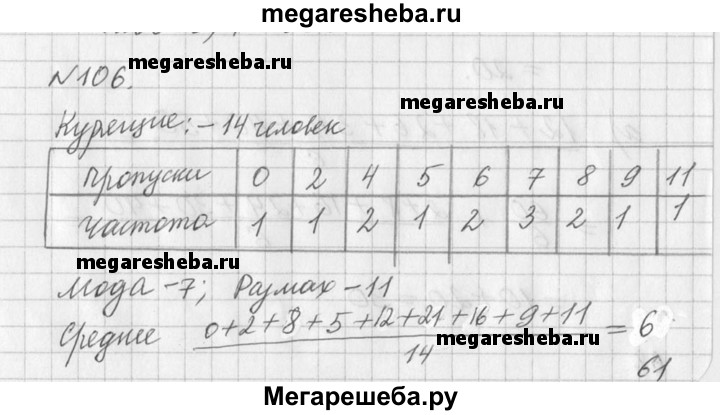 megaresheba.ru
N106. megaresheba.ru
megaresheba.ru
Курящие: - 14 человек
пропуски 0 2 4 5 6 7 8 9 11
частота 1 1 2 1 2 3 2 1 1
megaresheba.ru
Мода -7; Размах -11
Среднее 0+2+8+5+12+21+16+9+11 = 6
14 megaresheba.ru
61
Мегарешеба.ру